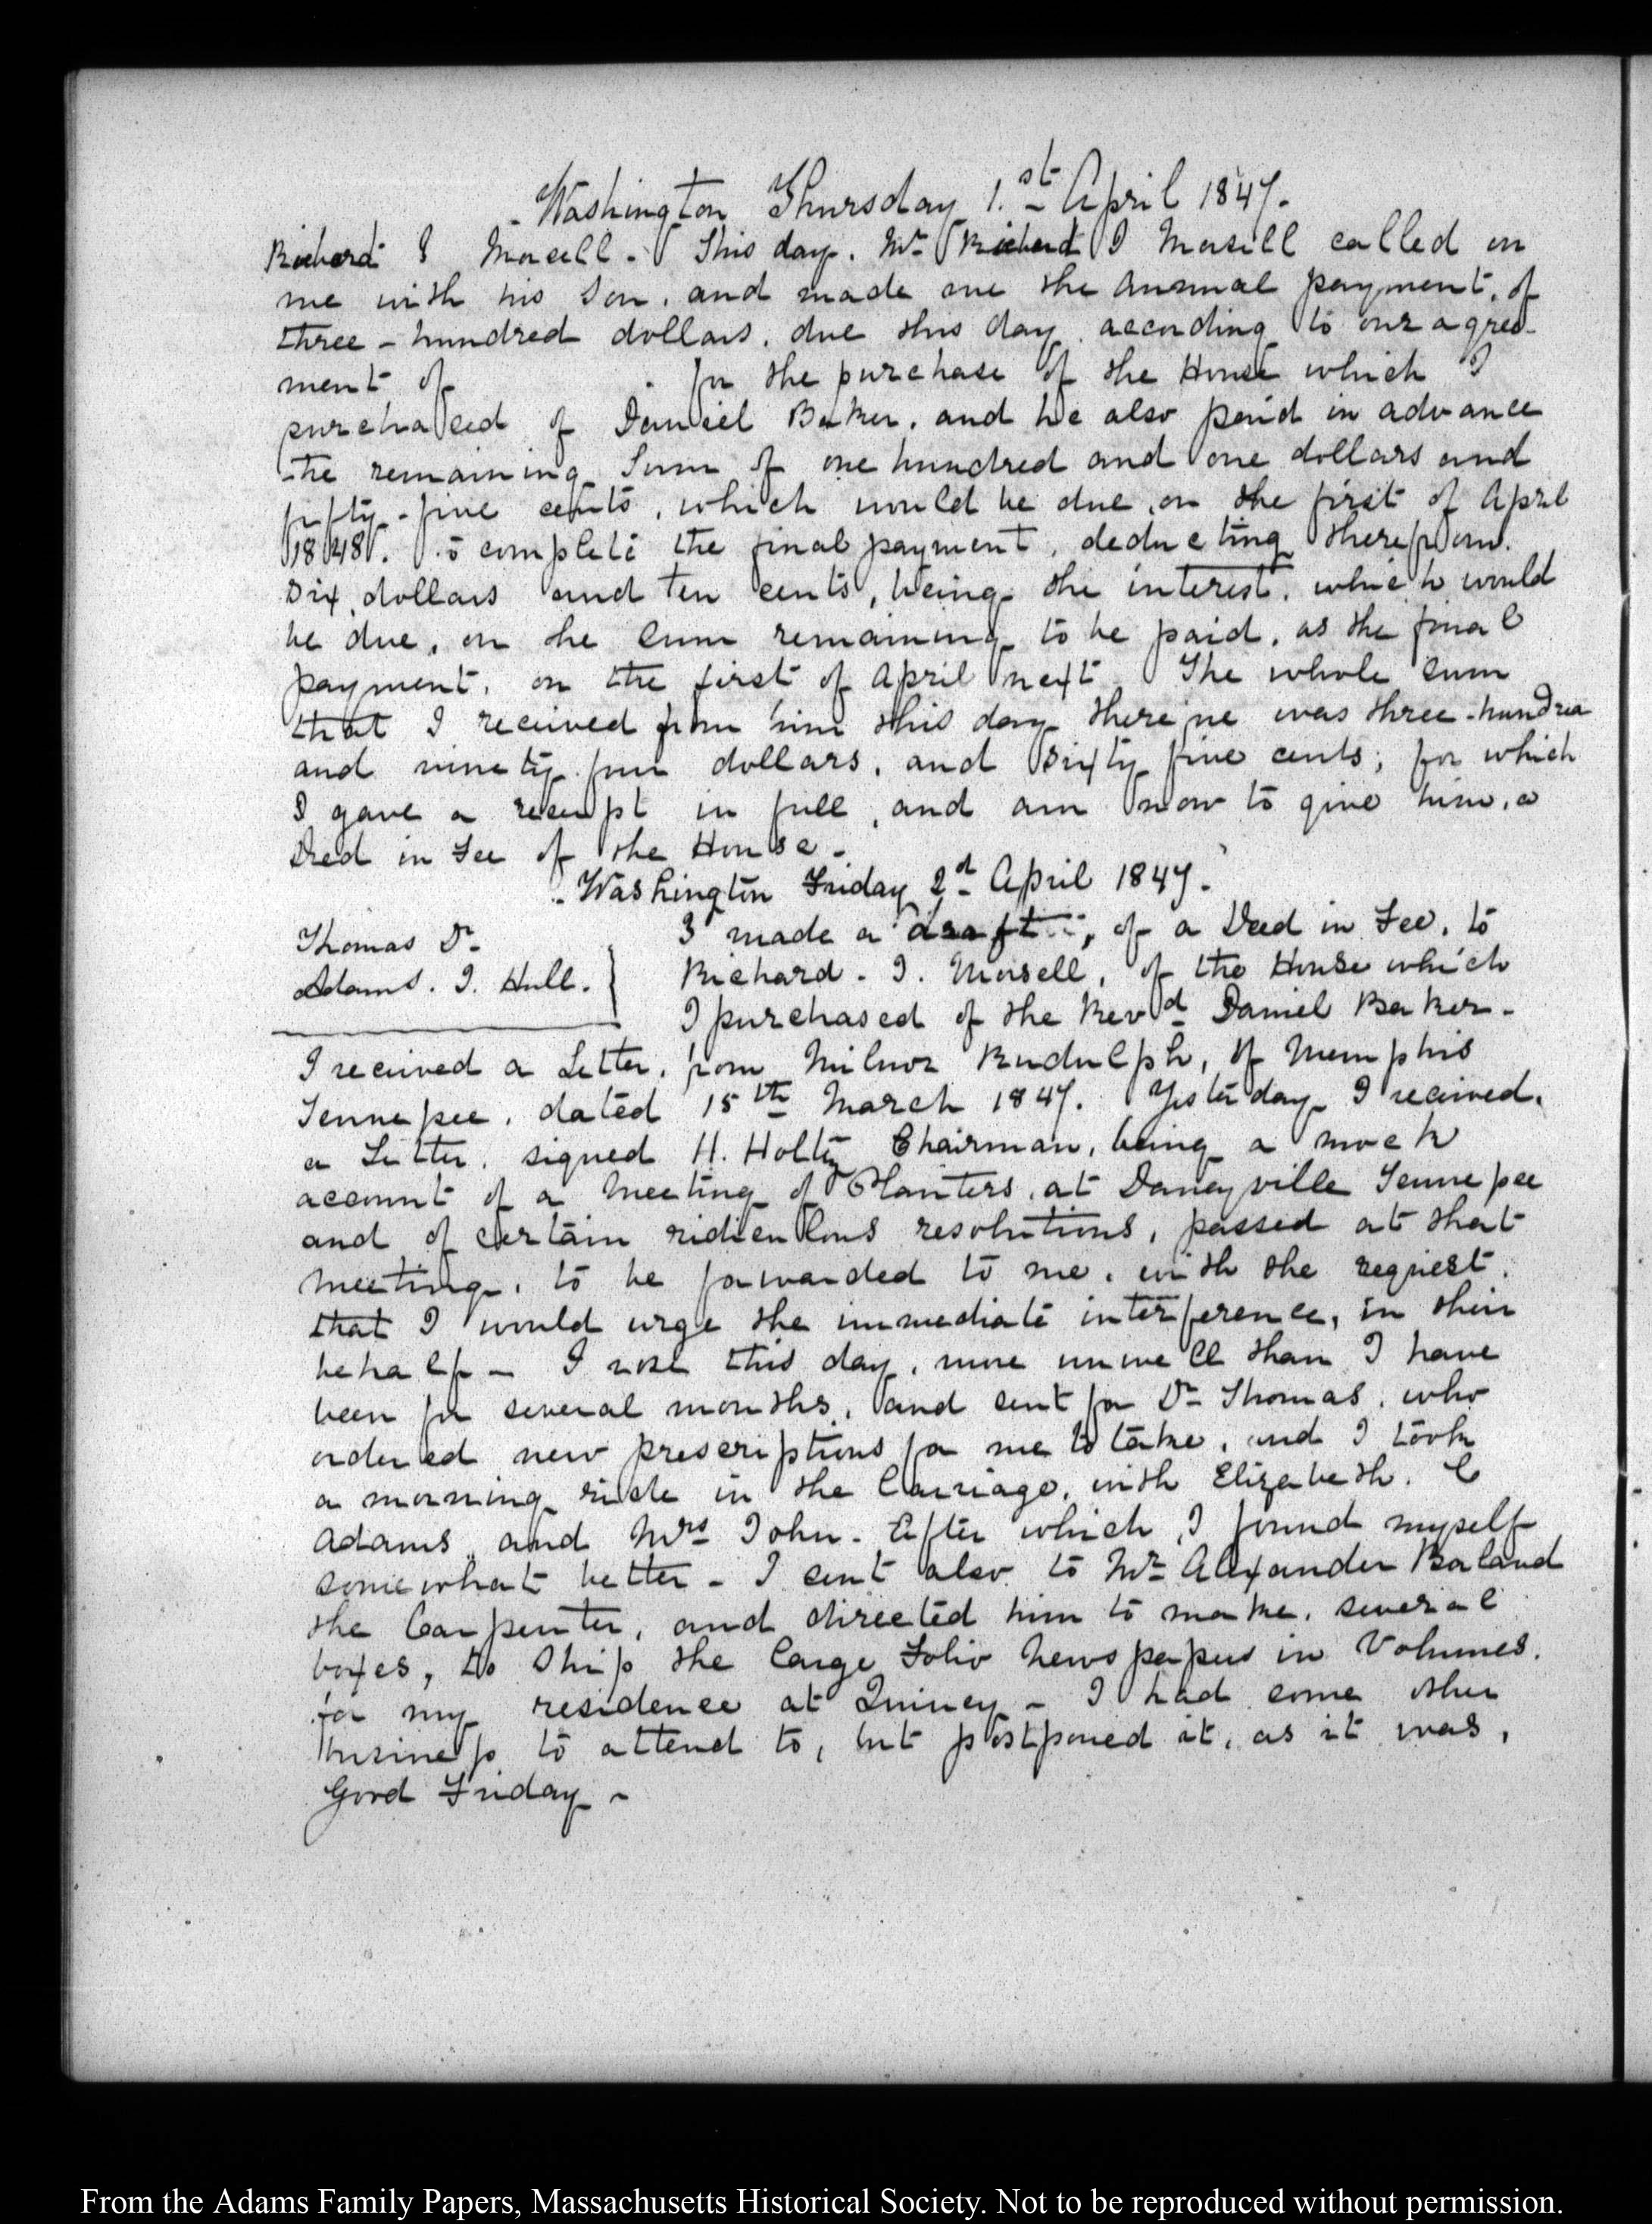 Washington Thursday 1.st April 1847.
Richard I Morsell. This day. Mr Richard I Morsell called on
me with his Son, and made me the Annual payment, of
three-hundred dollars, due this day according to our agree-
ment of . for the purchase of the House which I
purchased of Daniel Baker, and he also paid in advance
the remaining Sum of one hundred and one dollars and
fifty-five cents, which would be due, on the first of April
1848. to complete the final payment, deducting therefrom.
Six dollars and ten cents, being the interest, which would
be due, on the Sum remaining to be paid, as the final
payment, on the first of April next. The whole Sum
that I received from him this day therefore was three-hundred
and ninety five dollars, and sixty five cents; for which
I gave a receipt in full, and am now to give him, a
Deed in Fee of the House -
Washington Friday 2d April 1847.
Thomas Dr.
Adams. I. Hull.
I made a draft, of a Deed in Fee, to
Richard. I. Morsell, of the House which
I purchased of the Revd Daniel Baker -
I received a Letter, from Milnor Rudulph, of Memphis
Tennessee, dated 15th March 1847. Yesterday I received.
a Letter, signed H. Holtz Chairman, being a mock
account of a Meeting of Planters, at Danceyville Tennessee
and of certain ridiculous resolutions, passed at that
Meeting, to be forwarded to me, with the request.
that I would urge the immediate interference, in their
behalf - I rose this day, more unwell than I have
been for several months, and sent for Dr Thomas, who
ordered new prescriptions for me to take, and I took
a morning ride in the Carriage, with Elizabeth. C
Adams and Mrs John. After which, I found myself
somewhat better - I sent also to Mr Alexander Boland
the Carpenter, and directed him to make, several
boxes, to Ship the large Folio Newspapers in Volumes.
for my residence at Quincy - I had some other
business to attend to, but postponed it, as it was,
Good Friday -
From the Adams Family Papers, Massachusetts Historical Society. Not to be reproduced without permission.